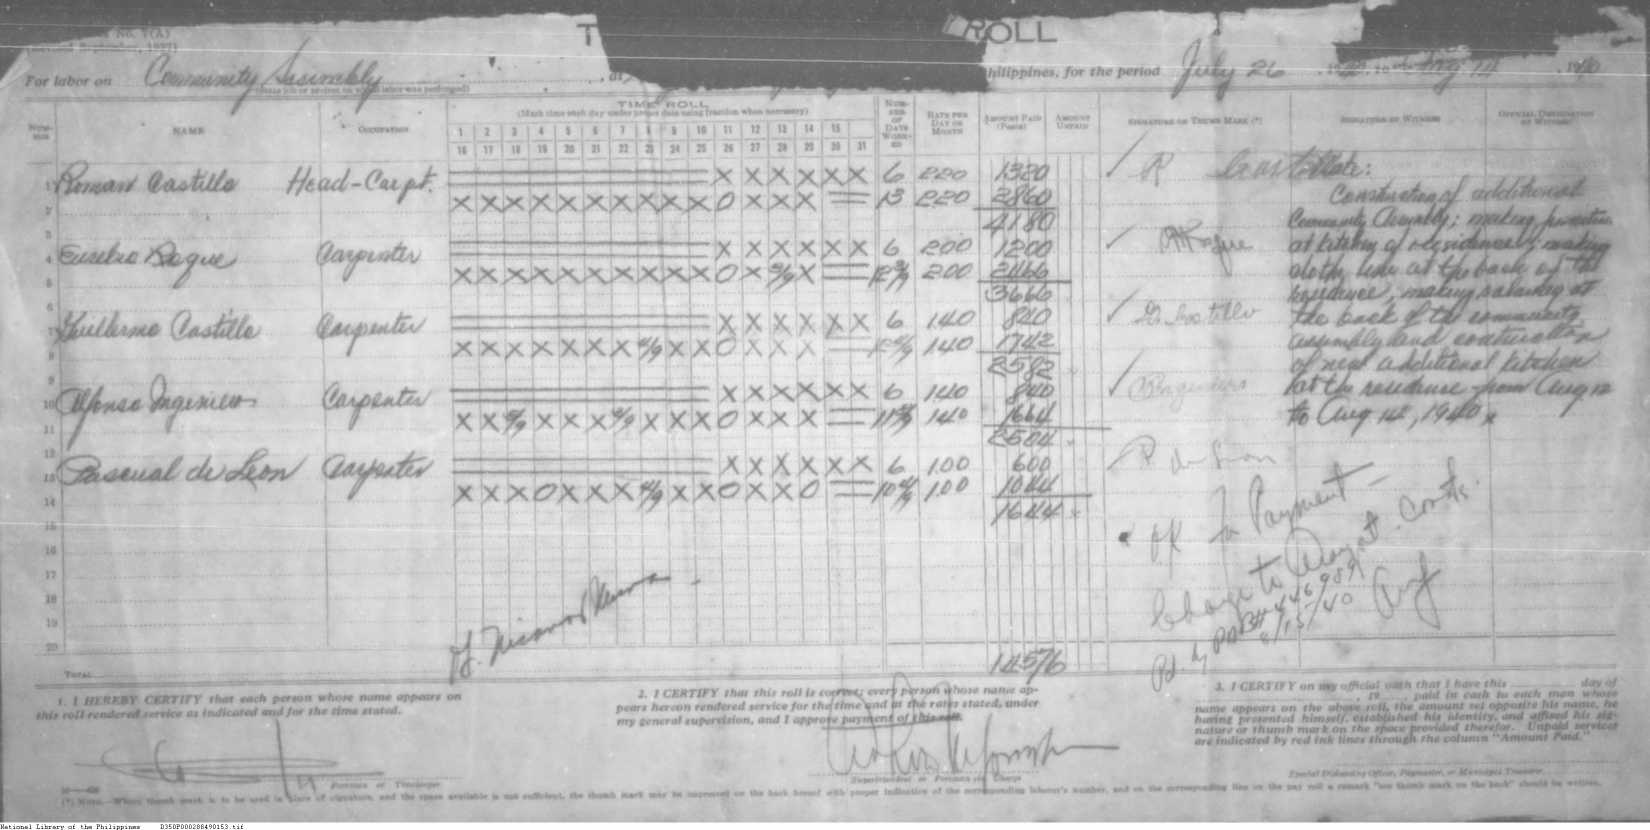 No. 7(A)
T ROLL
For labor on Community Assembly, at Philippines, for the period July 26, to Aug 14, 1940
TIME ROLL
(Mark time each day under proper date using fraction when necessary)
NUMBER NAME OCCUPATION 1 2 3 4 5 6 7 8 9 10 11 12 13 14 15 NUMBER OF DAYS WORKED RATE PER DAY OR MONTH AMOUNT PAID (Pesos) AMOUNT UNPAID SIGNATURE OR THUMB MARK (*) SIGNATURE OF WITNESS OFFICIAL DESIGNATION OF WITNESS
16 17 18 19 20 21 22 23 24 25 26 27 28 29 30 31
1 Roman Castillo Head-Carpt. X X X X X X 6 220 1320 R Castillo
2 X X X X X X X X X X O X X X 13 220 2860
3 4180
4 Eusebio Roque Carpenter X X X X X X 6 200 1200 Roque
5 X X X X X X X X X X O X X 200 2466
3666
7 Guillermo Castillo Carpenter X X X X X X 6 140 840 G Castillo
8 X X X X X X X 4/9 X X O X X X 140 1742
9 2582
10 Alfonso Ingeniero Carpenter X X X X X X 6 140 840
11 X X X X X X X X O X X X 140 1664
12 2504
13 Pascual de Leon Carpenter X X X X X X 6 1.00 600 P de Leon
14 X X X O X X X 4/9 X X O X X O 10 4/9 1.00 1044
15 1644
16
17
18
19
20
Note:
Construction of additional
Community Assembly; making
at kitchen of residence; making
clothe line at the back of the
residence, making at
the back of the community
assembly and construction
of new additional kitchen
at the residence from Aug 12
to Aug 14, 1940 x
OK for Payment –
Charge to Consts.
Pd. by 8/15/40
TOTAL 14576
1. I HEREBY CERTIFY that each person whose name appears on
this roll rendered service as indicated and for the time stated.
Foreman or Timekeeper
2. I CERTIFY that this roll is correct; every person whose name ap-
pears hereon rendered service for the time and at the rates stated, under
my general supervision, and I approve payment of this roll.
Superintendent or Foreman in Charge
3. I CERTIFY on my official oath that I have this day of
, 19 paid in cash to each man whose
name appears on the above roll, the amount set opposite his name, he
having presented himself, established his identity, and affixed his sig-
nature or thumb mark on the space provided therefor. Unpaid services
are indicated by red ink lines through the column "Amount Paid."
Special Disbursing Officer, Paymaster, or Municipal Treasurer
(*) NOTE.—Where thumb mark is to be used in place of signature, and the space available is not sufficient, the thumb mark may be impressed on the back hereof with proper indication of the corresponding laborer's number, and on the corresponding line on the pay roll a remark "see thumb mark on the back" should be written.
National Library of the Philippines D350P000288490153.tif